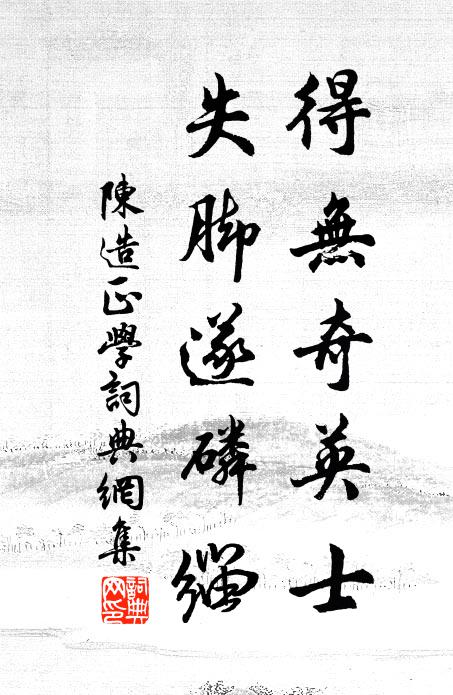 得無奇英士
失脚遂磷緇
陳造正學詞典網集
詞典网印